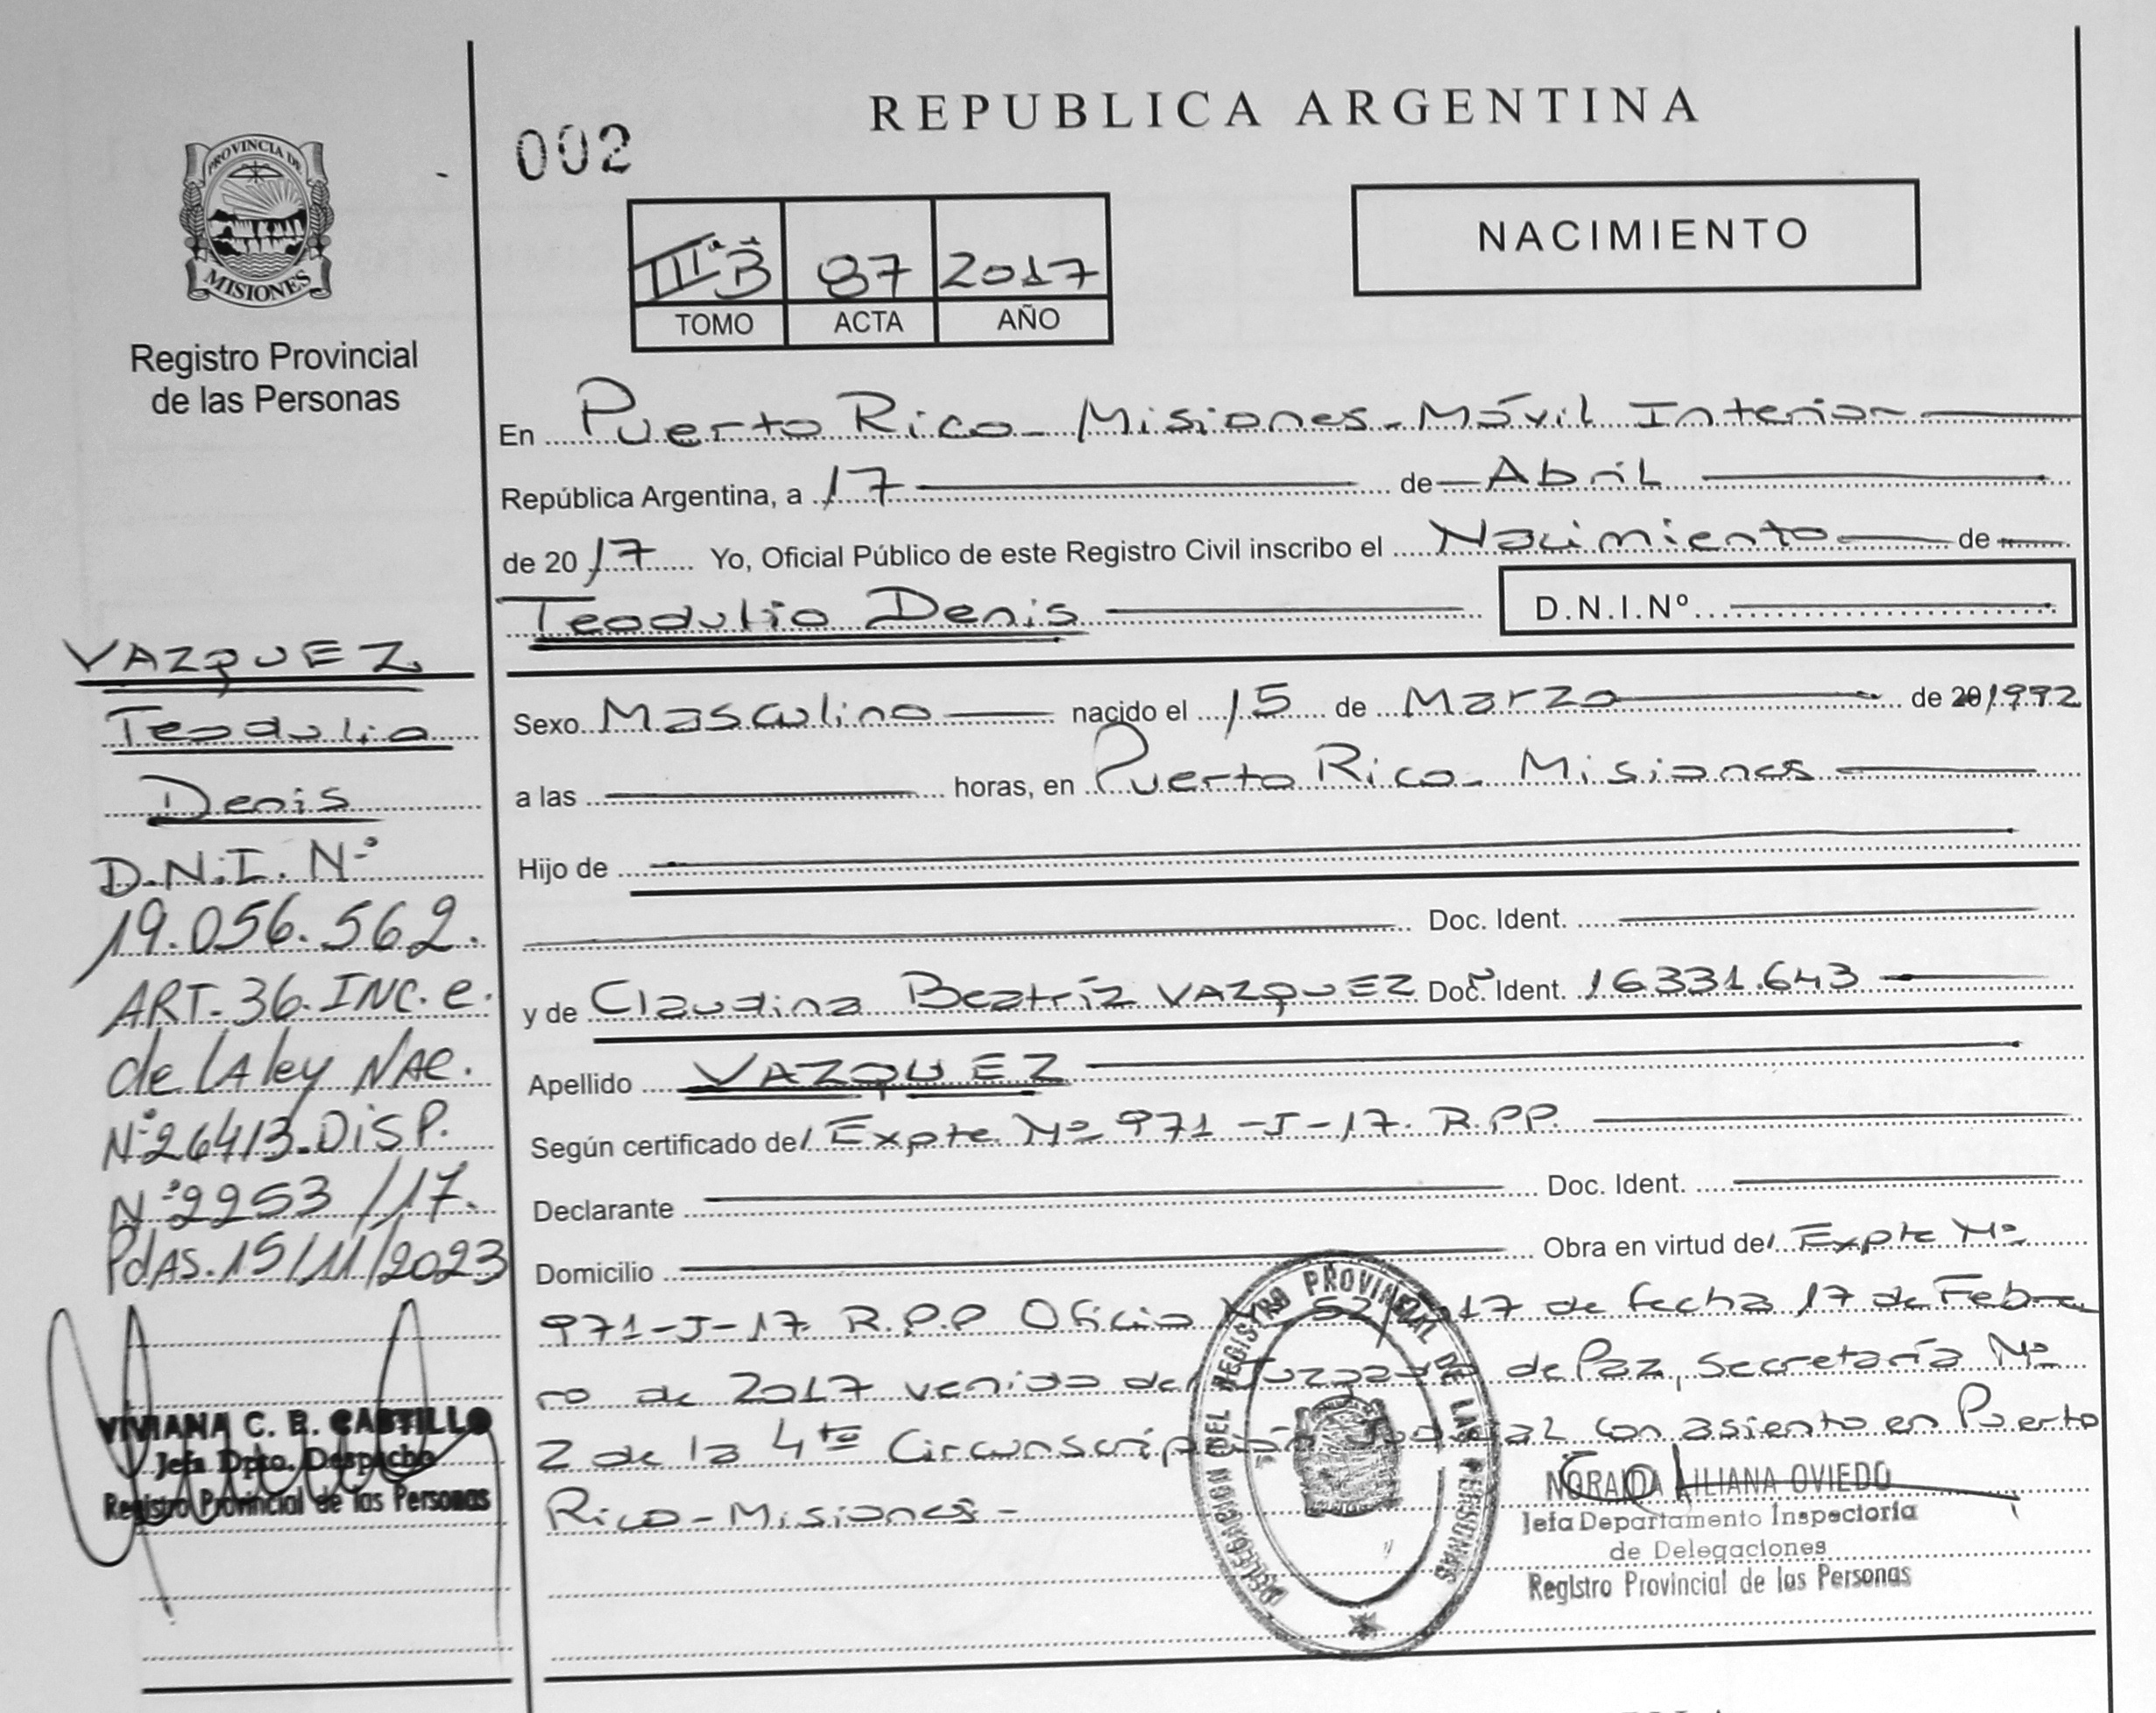 REPUBLICA ARGENTINA
002
PROVINCIA DE
MISIONES
Registro Provincial
de las Personas
NACIMIENTO
IIIª B 87 2017
TOMO ACTA AÑO
En Puerto Rico - Misiones - Móvil Interior
República Argentina, a 17 de Abril
de 2017 Yo, Oficial Público de este Registro Civil inscribo el Nacimiento de
Teodulio Denis D.N.I.Nº
Sexo Masculino nacido el 15 de Marzo de 20 1992
a las horas, en Puerto Rico - Misiones
Hijo de
Doc. Ident.
y de Claudina Beatríz VAZQUEZ Doc. Ident. 16331.643
Apellido VAZQUEZ
Según certificado del Expte. Nº 971-J-17. R.P.P.
Declarante Doc. Ident.
Domicilio Obra en virtud del Expte Nº
971-J-17 R.P.P Oficio Nº 52/2017 de fecha 17 de Febre
ro de 2017 venido del Juzgado de Paz, Secretaría Nº
2 de la 4ta Circunscripción Judicial con asiento en Puerto
Rico - Misiones -
VAZQUEZ
Teodulio
Denis
D.N.I. Nº
19.056.562.
ART. 36. INC. e.
de LA ley NAC.
Nº 26413. DISP.
Nº 2253/17.
PdAS. 15/11/2023
VIVIANA C. B. CASTILLO
Jefa Dpto. Despacho
Registro Provincial de las Personas
DELEGACION DEL REGISTRO PROVINCIAL DE LAS PERSONAS
NORAIDA LILIANA OVIEDO
Jefa Departamento Inspectoría
de Delegaciones
Registro Provincial de las Personas